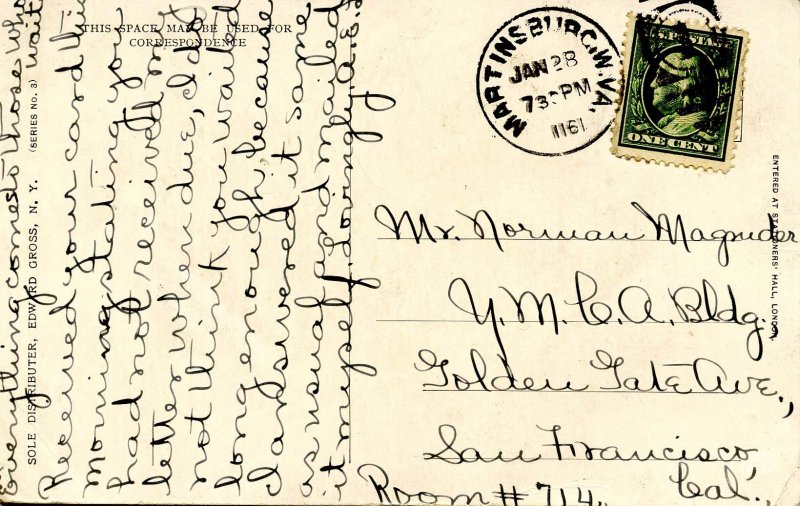 THIS SPACE MAY BE USED FOR
CORRESPONDENCE
everything comes to those who
wait
Received your card this
morning stating you
had not received my
letter when due, I do
not think you waited
long enough, because
I answered it same
as usual and mailed
it myself. Lovingly, A.E.
SOLE DISTRIBUTER, EDWARD GROSS, N. Y. (SERIES NO. 3)
MARTINSBURG, W. VA.
JAN 28
7 30 PM
ONE CENT
Mr. Norman Magruder
Y.M.C.A. Bldg.,
Golden Gate Ave.,
San Francisco
Cal.,
Room # 714.
ENTERED AT STATIONERS' HALL, LONDON.